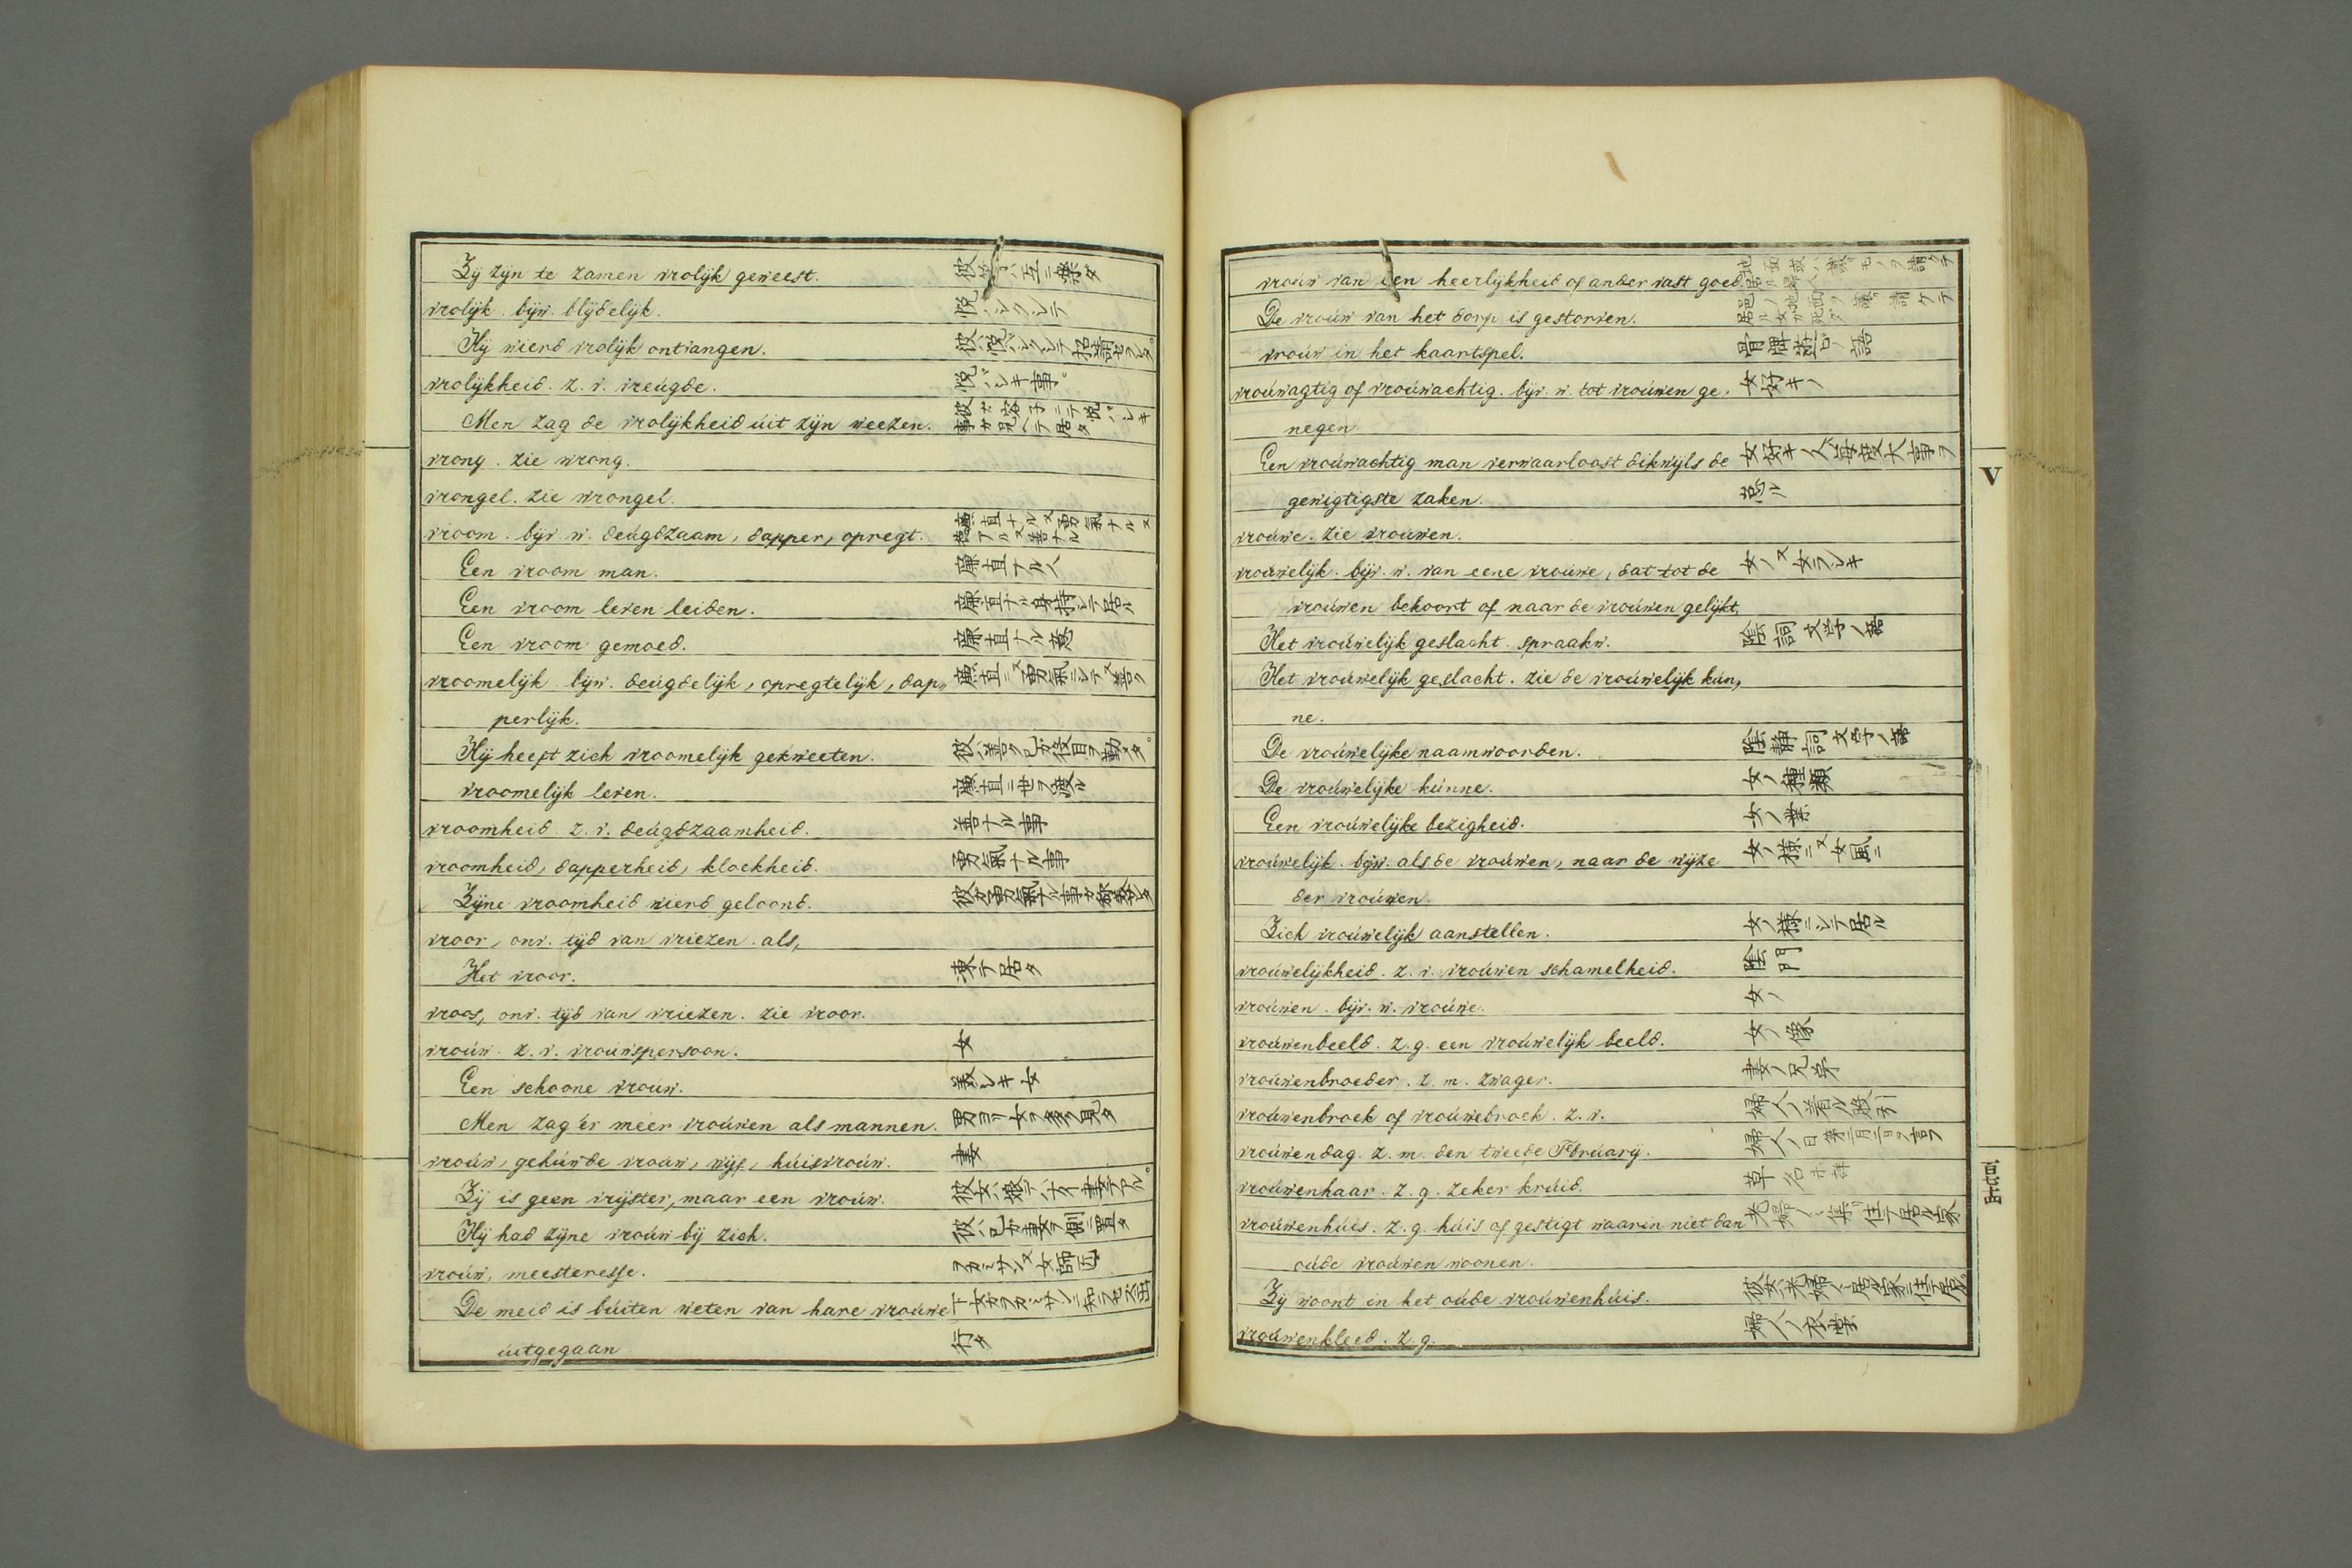 Zij zijn te zamen vrolijk geweest. 彼等ハ互ニ樂タ
vrolijk. bijw. blijdelijk. 悦バシクシテ
Hij wierd vrolijk ontvangen. 彼ハ悦バシクシテ招請セラレタ。
vrolijkheid. z. v. vreúgde. 悦バシキ事。
Men zag de vrolijkheid úit zijn weezen. 彼ガ容子ニテ悦バシキ事ガ見ヘテ居タ
vrong. zie wrong.
vrongel. zie wrongel.
vroom. bijv. w. deúgdzaam, dapper, opregt. 廉直ナル又勇氣ナル又徳アル又善ナル
Een vroom man. 廉直ナル人
Een vroom leven leiden. 廉直ナル身持シテ居ル
Een vroom gemoed. 廉直ナル意
vroomelijk bijw. deúgdelijk, opregtelijk, dap„ 廉直ニ又勇氣ニシテ又善ク
perlijk.
Hij heeft zich vroomelijk gekweeten. 彼ハ善ク己ガ役目ヲ勤タ。
vroomelijk leven. 廉直ニ世ヲ渡ル
vroomheid. z. v. deúgdzaamheid. 善ナル事
vroomheid, dapperheid, kloekheid. 勇氣ナル事
Zijne vroomheid wierd geloond. 彼ガ勇氣ナル事ガ褒美シタ
vroor, onv. tijd van vriezen. als,
Het vroor. 凍テ居タ
vroos, onv. tijd van vriezen. zie vroor.
vroúw. z. v. vroúwspersoon. 女
Een schoone vrouw. 美シキ女
Men zag'er meer vroúwen als mannen. 男ヨリ女ヲ多ク見タ
vroúw, gehúwde vroúw, wijf, húisvroúw. 妻
Zij is geen vrijster, maar een vroúw. 彼女ハ娘デハナイ妻デアル。
Hij had zijne vroúw bij zich. 彼ハ己ガ妻ヲ側ニ置タ
vroúw, meesteresse. ヲカミサン又女師匠
De meid is búiten weten van hare vroúwe 下女ガヲカミサンニ知ラセズ出
úitgegaan 行タ
vroúw van een heerlijkheid of ander vast goed. 地面或ハ
De vroúw van het dorp is gestorven.
vroúw in het kaartspel. 骨牌遊ビノ語
vroúwagtig of vroúwachtig. bijv. w. tot vroúwen ge„ 女好キノ
negen
Een vroúwachtig man verwaarloost dikwijls de 女好キノ人ハ毎度大事ヲ
gewigtigste zaken. 怠ル
vroúwe. zie vroúwen.
vroúwelijk. bijv. w. van eene vroúwe, dat tot de 女ノ又女ラシキ
vroúwen behoort of naar de vroúwen gelijkt,
Het vroúwelijk geslacht. spraakw. 陰詞 文学ノ語
Het vroúwelijk geslacht. zie de vroúwelijk kún„
ne.
De vroúwelijke naamwoorden. 陰静詞 文学ノ語
De vroúwelijke kúnne. 女ノ種類
Een vroúwelijke bezigheid. 女ノ業
vroúwelijk. bijw. als de vroúwen, naar de wijze 女ノ様ニ又女風ニ
der vroúwen.
Zich vroúwelijk aanstellen. 女ノ様ニシテ居ル
vroúwelijkheid. z. v. vroúwen schamelheid. 陰門
vroúwen. bijv. w. vroúwe. 女ノ
vroúwenbeeld. z. g. een vroúwelijk beeld. 女ノ像
vroúwenbroeder. z. m. zwager. 妻ノ兄弟
vroúwenbroek of vroúwebroek. z. v. 婦人ノ着ル股引
vroúwendag. z. m. den tweede Februarij. 婦人ノ日 第二月二日ヲ言フ
vroúwenhaar. z. g. zeker krúid. 草ノ名 未詳
vroúwenhúis. z. g. húis of gestigt waarin niet dan 老婦人ノ集リ住テ居ル家
oúde vroúwen woonen.
Zij woont in het oúde vroúwenhúis. 彼女ハ老婦人ノ居ル家ニ住テ居ル。
vroúwenkleed. z. g. 婦人ノ衣裳
V